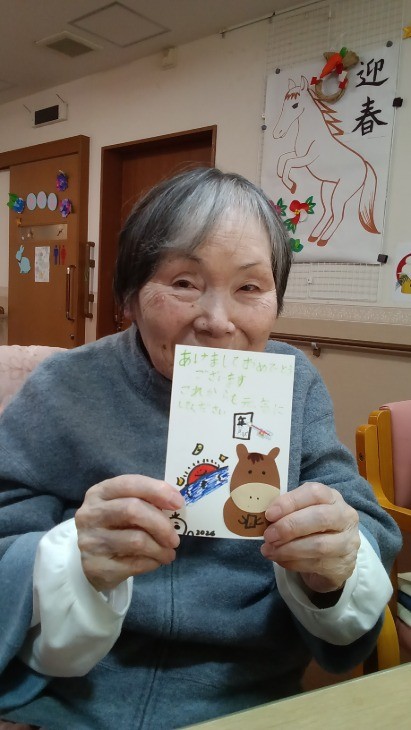 迎春
あけましておめでとう
ございます
これからも元気に
してください
2026